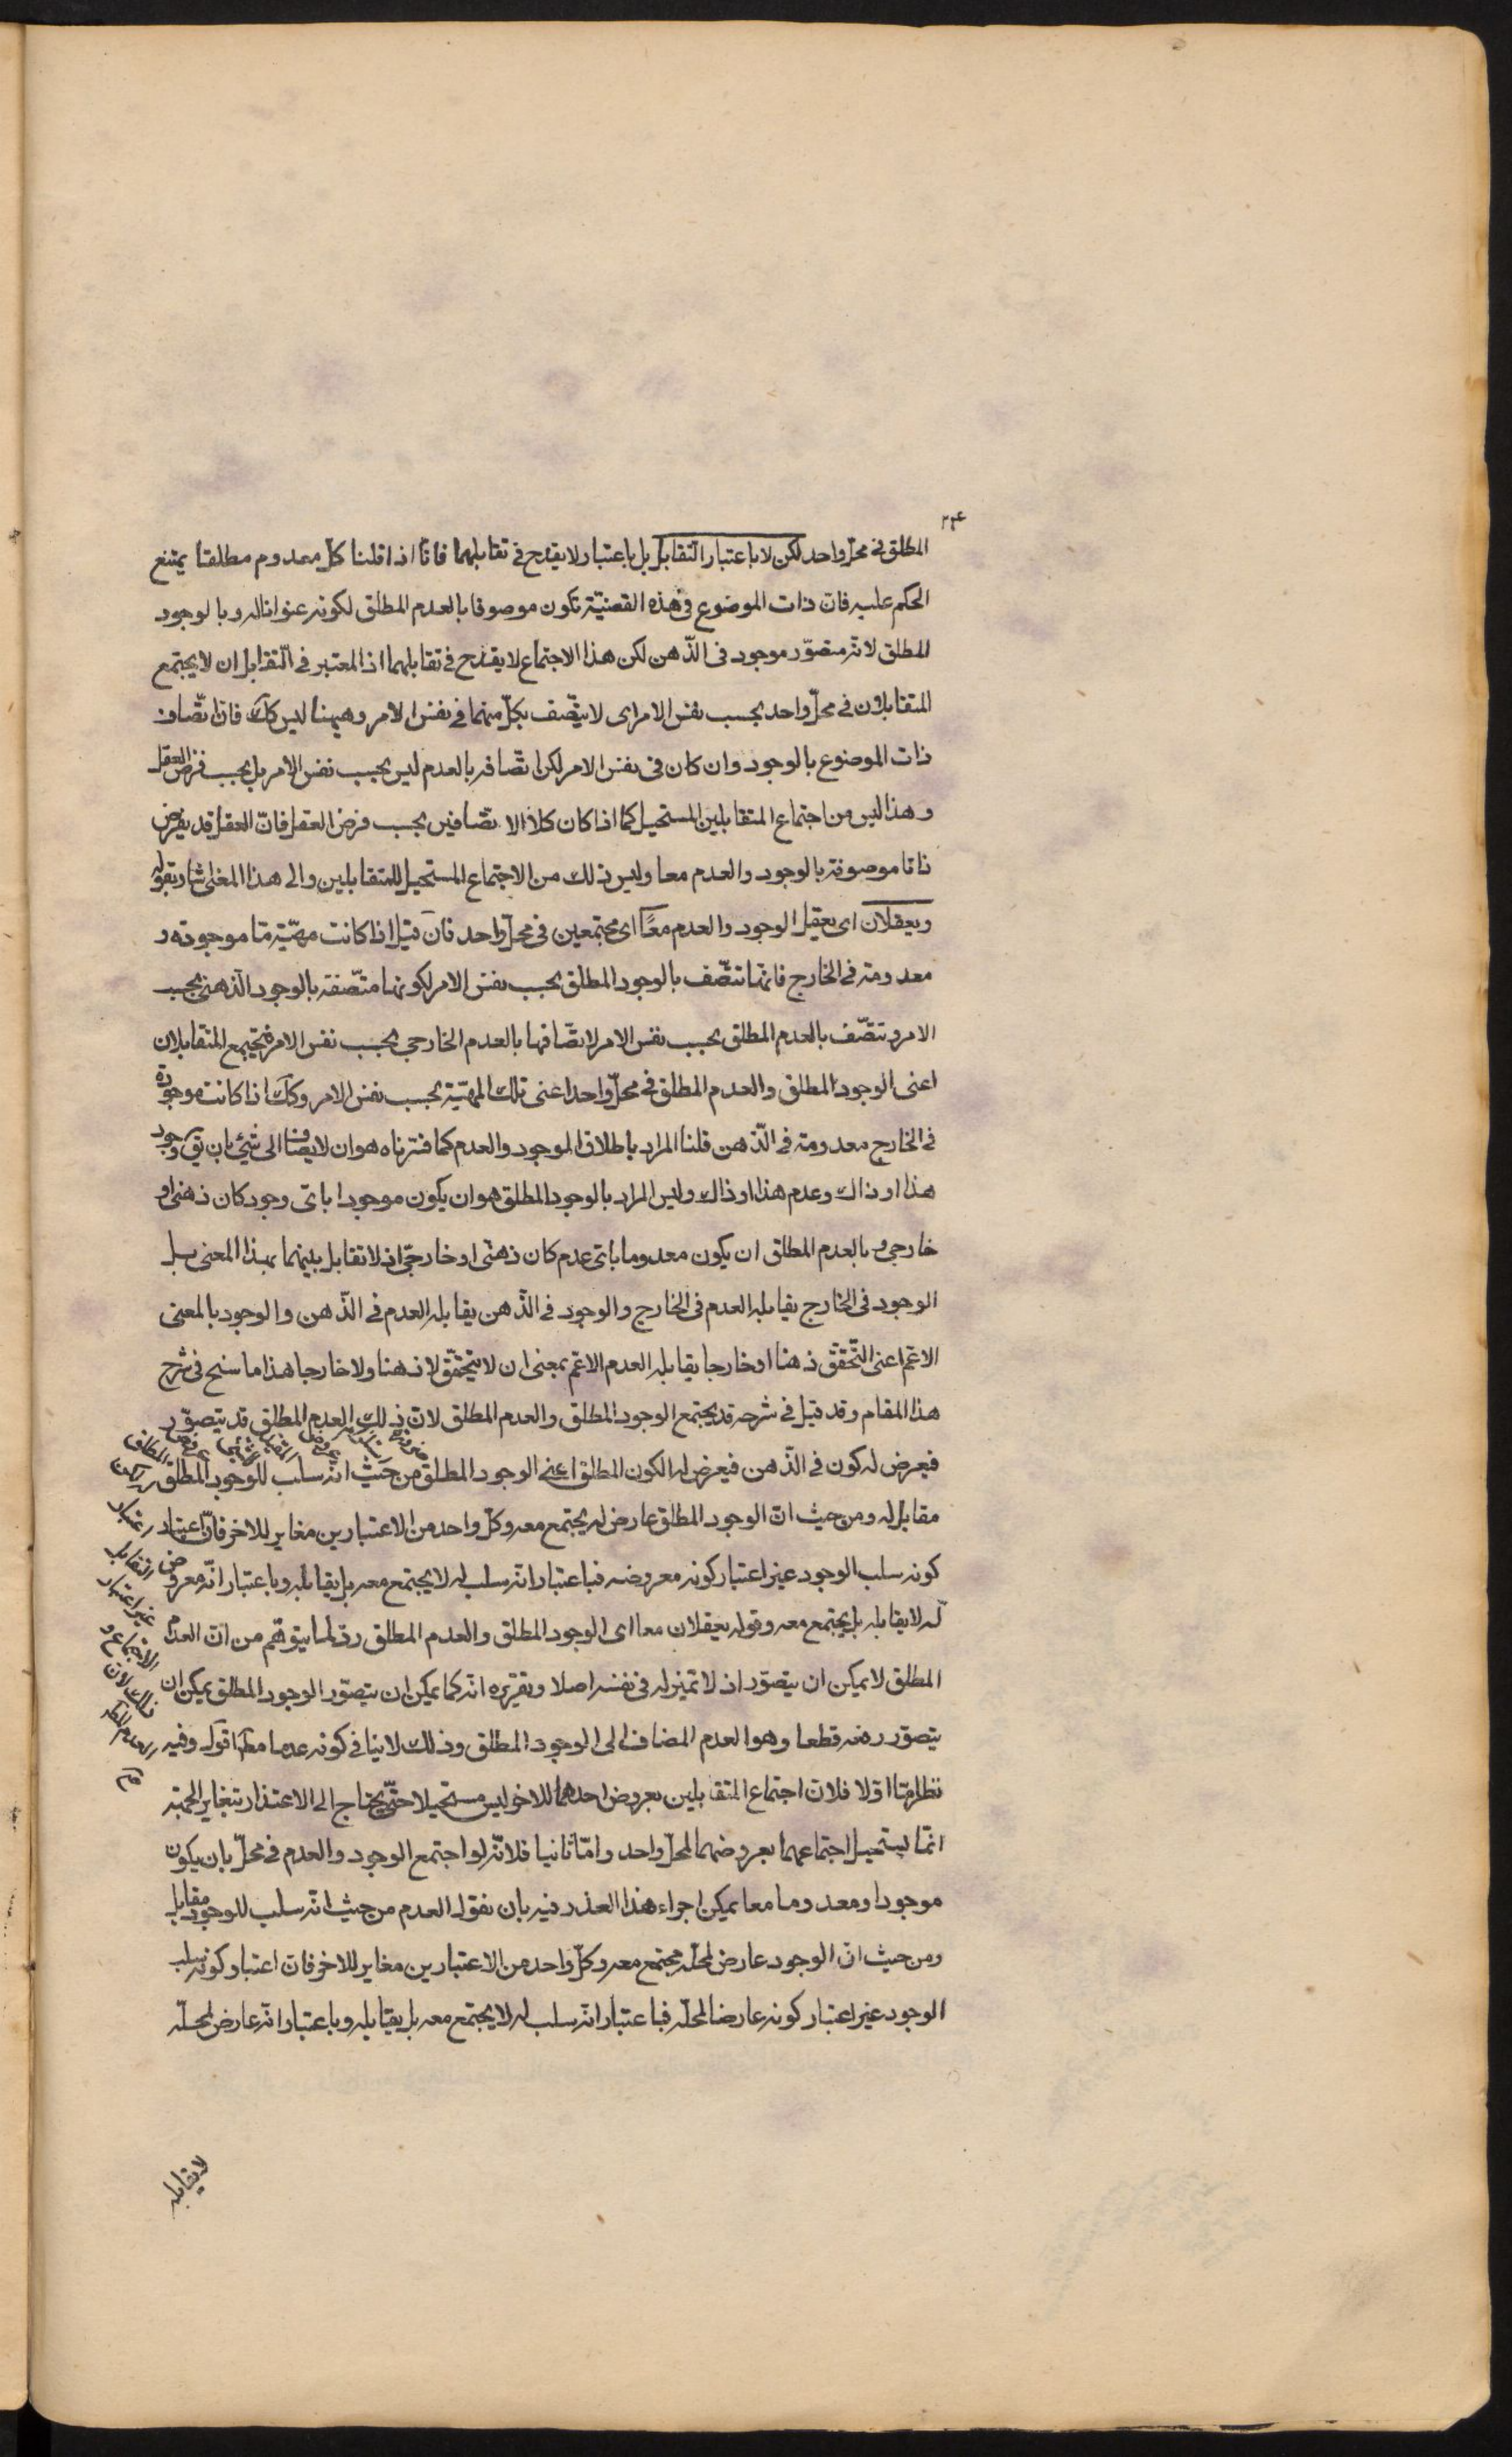 ٢٣٤
المطلق فى محلّ واحد لكن لا باعتبار التقابل بل باعتبار لا يقدح فى تقابلهما فانّا اذا قلنا كلّ معدوم مطلقا يمتنع
الحكم عليه فانّ ذات الموضوع فى هذه القضيّة تكون موصوفا بالعدم المطلق لكونه عنوانا له وبالوجود
المطلق لانّه متصوّر موجود فى الذّهن لكن هذا الاجتماع لا يقدح فى تقابلهما اذ المعتبر فى التّقابل ان لا يجتمع
المتقابلان فى محلّ واحد بحسب نفس الامر اى لا يتّصف بكلّ منهما فى نفس الامر وهيهنا ليس كك فانّ اتّصاف
ذات الموضوع بالوجود وان كان فى نفس الامر لكن اتّصافه بالعدم ليس بحسب نفس الامر بل بحسب فرض العقل
وهذا ليس من اجتماع المتقابلين المستحيل كما اذا كان كلا الاتّصافين بحسب فرض العقل فانّ العقل قد يفرض
ذاتا موصوفة بالوجود والعدم معا وليس ذلك من الاجتماع المستحيل للمتقابلين والى هذا المعنى اشار بقوله
ويعقلان اى يعقل الوجود والعدم معًا اى مجتمعين فى محلّ واحد فان قيل اذا كانت مهيّة ما موجودة و
معدومة فى الخارج فانّها تتّصف بالوجود المطلق بحسب نفس الامر لكونها متّصفة بالوجود الذّهنى بحسب
الامر وتتّصف بالعدم المطلق بحسب نفس الامر لاتّصافها بالعدم الخارجى بحسب نفس الامر فيجتمع المتقابلان
اعنى الوجود المطلق والعدم المطلق فى محلّ واحد اعنى تلك المهيّة بحسب نفس الامر وكك اذا كانت موجودة
فى الخارج معدومة فى الذّهن قلنا المراد باطلاق الوجود والعدم كما فسّرناه هو ان لا يضافا الى شيئ بان يق وجود
هذا او ذاك وعدم هذا او ذاك وليس المراد بالوجود المطلق هو ان يكون موجودا باىّ وجود كان ذهنى او
خارجى وبالعدم المطلق ان يكون معدوما باىّ عدم كان ذهنى او خارجىّ اذ لا تقابل بينهما بهذا المعنى بل
الوجود فى الخارج يقابله العدم فى الخارج والوجود فى الذّهن يقابله العدم فى الذّهن والوجود بالمعنى
الاعمّ اعنى التّحقّق ذهنا او خارجا يقابله العدم الاعمّ بمعنى ان لا يتحقّق لا ذهنا ولا خارجا هذا ما سنح فى شرح
هذا المقام وقد قيل فى شرحه قد يجتمع الوجود المطلق والعدم المطلق لانّ ذلك العدم المطلق قد يتصوّر
فيعرض له كون فى الذّهن فيعرض له الكون المطلق اعنى الوجود المطلق من حيث انّه سلب للوجود المطلق
مقابل له ومن حيث انّ الوجود المطلق عارض له يجتمع معه وكلّ واحد من الاعتبارين مغاير للاخر فانّ اعتبار
كونه سلب الوجود غير اعتبار كونه معروضه فباعتبار انّه سلب له لا يجتمع معه بل يقابله وباعتبار انّه معروض
له لا يقابله بل يجتمع معه وقوله يعقلان معا اى الوجود المطلق والعدم المطلق ردّ لما يتوهّم من انّ العدم
المطلق لا يمكن ان يتصوّر اذ لا تميّز له فى نفسه اصلا وتقريره انّه كما يمكن ان يتصوّر الوجود المطلق يمكن ان
يتصوّر رفعه قطعا وهو العدم المضاف الى الوجود المطلق وذلك لا ينافى كونه عدما مطلقا اقول وفيه
نظر امّا اوّلا فلانّ اجتماع المتقابلين بعروض احدهما للاخر ليس مستحيلا حتّى يحتاج الى الاعتذار بتغاير الجهة
انّما يستحيل اجتماعهما بعروضهما لمحلّ واحد وامّا ثانيا فلانّه لو اجتمع الوجود والعدم فى محلّ بان يكون
موجودا ومعدوما معا يمكن اجراء هذا العذر فيه بان نقول العدم من حيث انّه سلب للوجود مقابل
ومن حيث انّ الوجود عارض لمحلّه مجتمع معه وكلّ واحد من الاعتبارين مغاير للاخر فانّ اعتبار كونه سلب
الوجود غير اعتبار كونه عارضا لمحلّه فباعتبار انّه سلب له لا يجتمع معه بل يقابله وباعتبار انّه عارض لمحلّه
التقابل
غير اعتبار
الاجتماع و
ذلك لانّ
العدم
لا يقابله